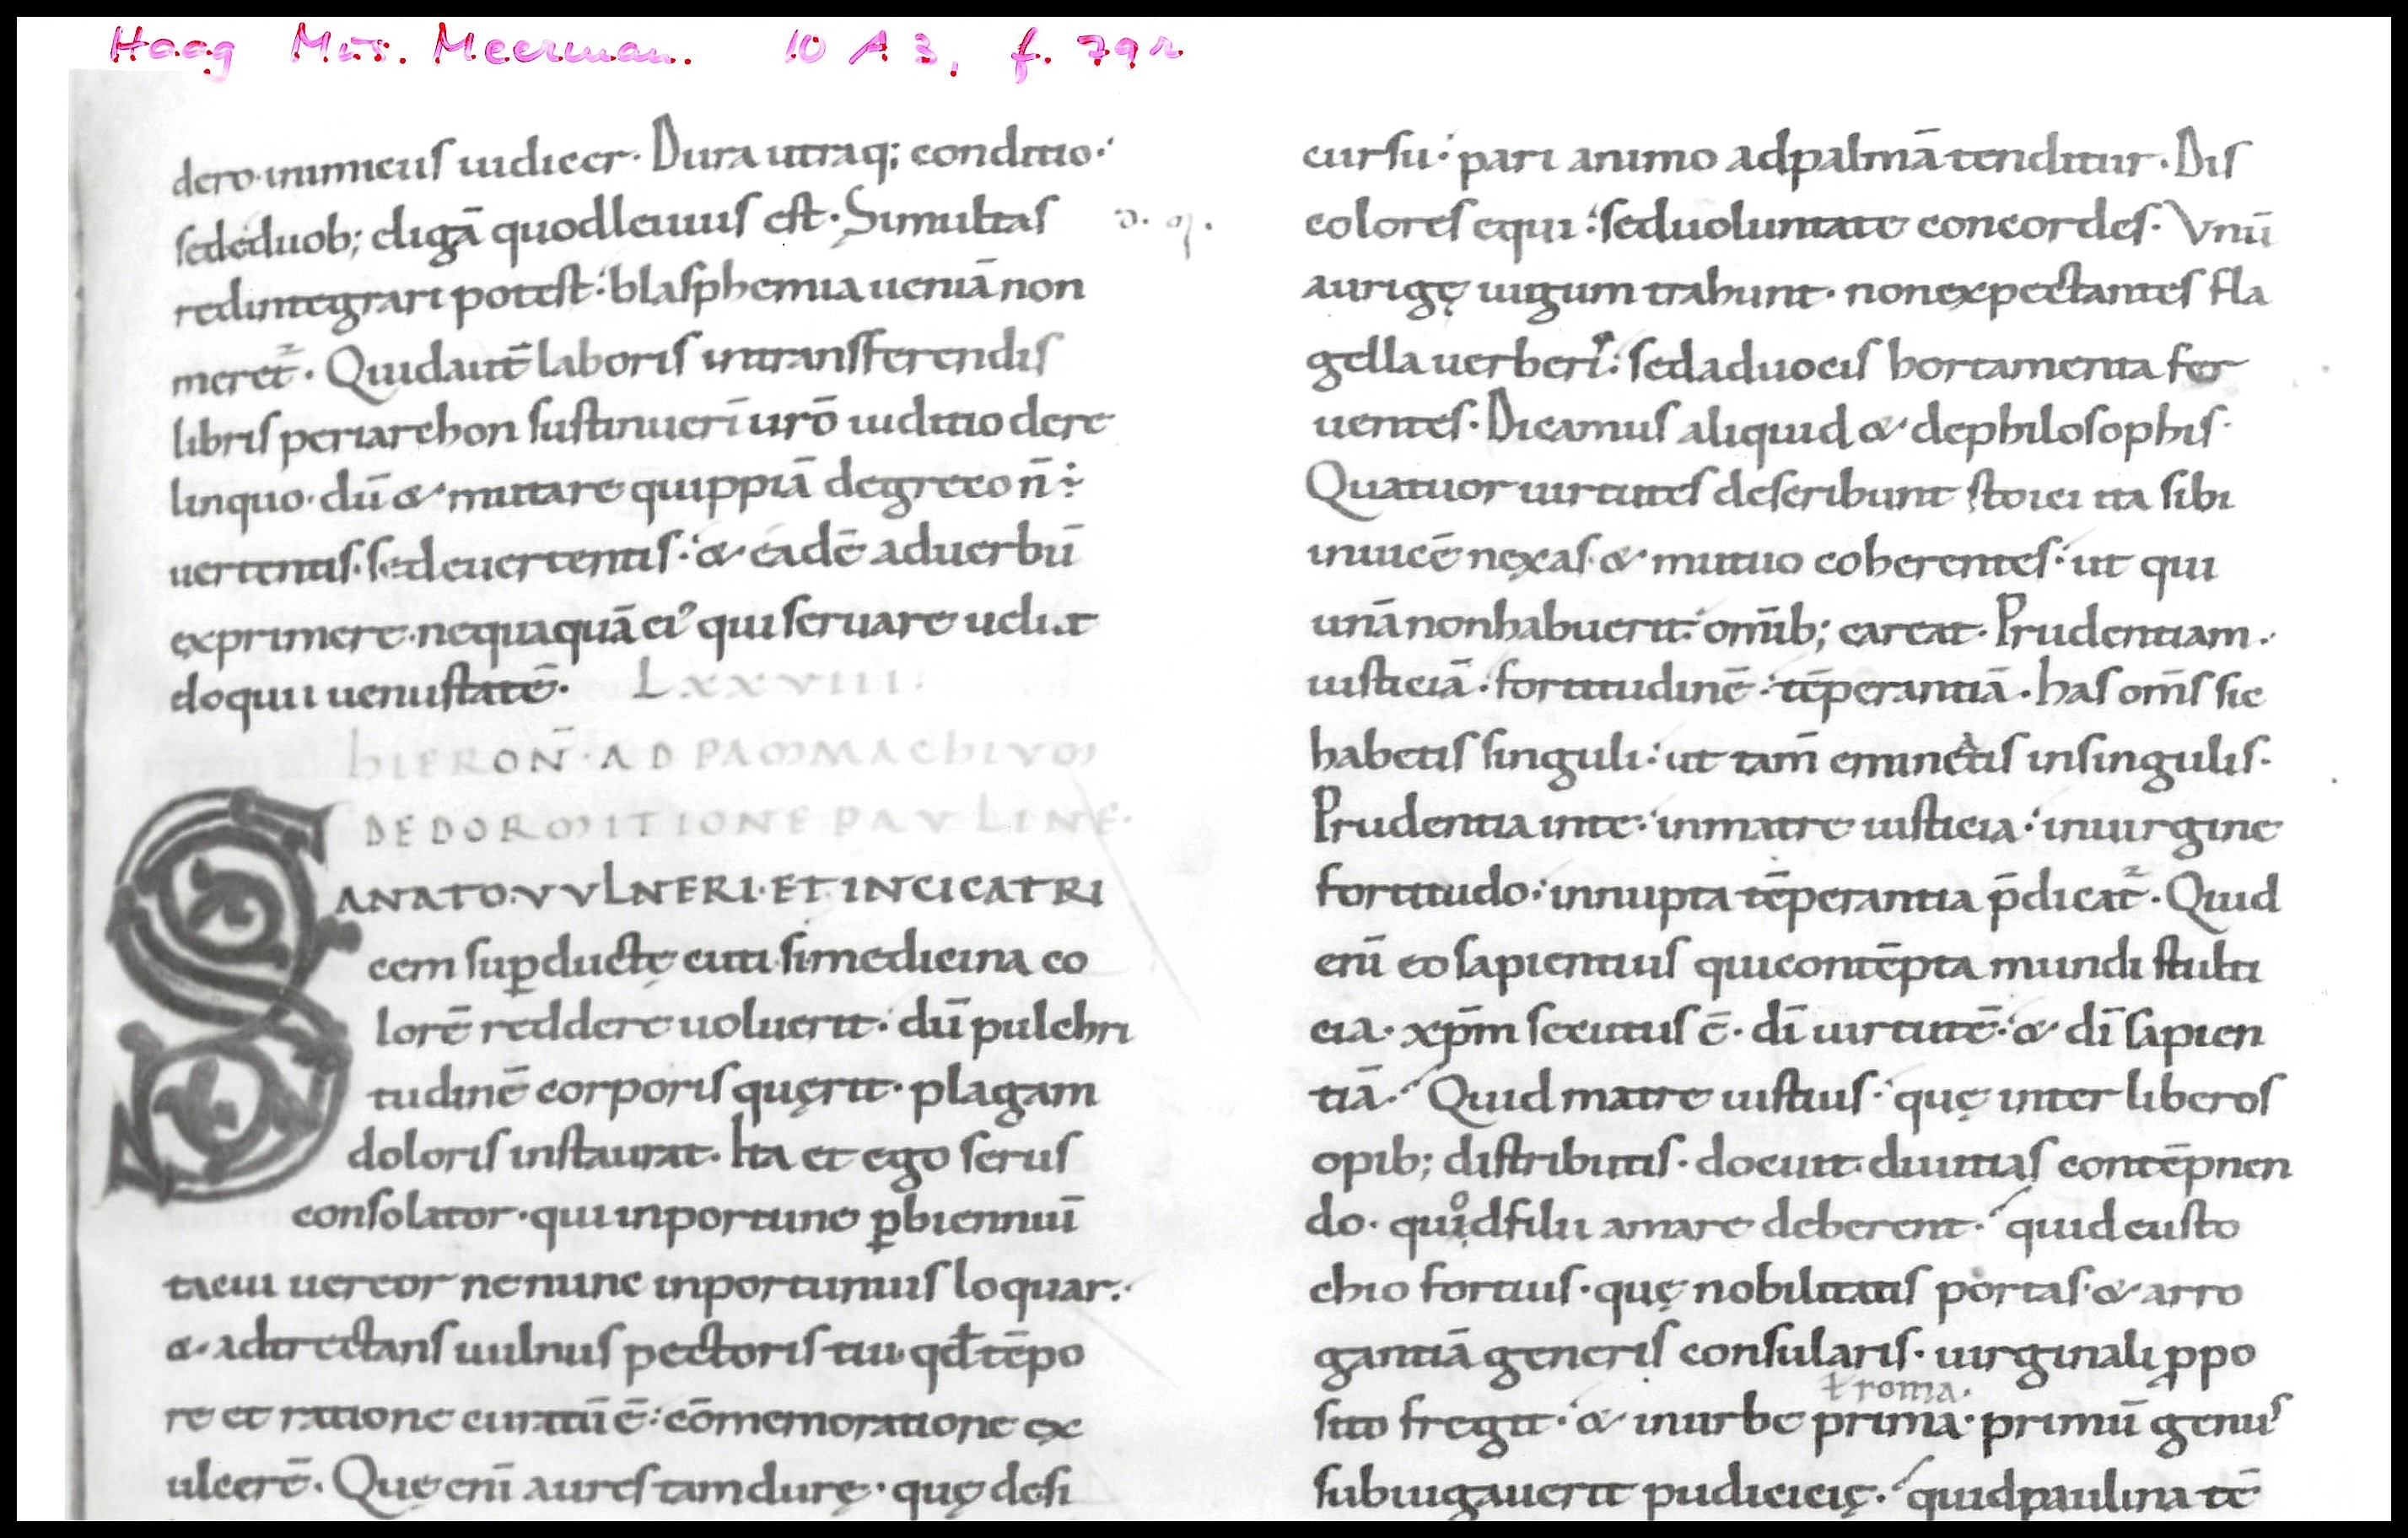 Haag Mus. Meerman. 10 A 3, f. 79r
dero·inimicus iudicer. Dura utraq; conditio·
sed éduob; eligā quodleuius est. Simultas
redintegrari potest: blasphemia ueniā non
meret᷑. Quid aut̄ laboris in transferendis
libris periarchon sustinueri᷑ ur̄o iuditio dere
linquo· dū & mutare quippiā degreco n̄ ÷
uertentis· sed euertentis: & eadē aduerbū
exprimere·nequaquā ei᾽ qui seruare uelit
eloquii uenustatē. LXXVIII.
HIERON̄. AD PAMMACHIUM
DE DORMITIONE PAULINE.
SANATO·VVLNERI·ET INCICATRI
cem suꝑductę cuti·si medicina co
lorē reddere uoluerit: dū pulchri
tudinē corporis quęrit· plagam
doloris instaurat. Ita et ego serus
consolator· qui inportune ꝑbienniū
tacui uereor ne nunc inportunius loquar.
& adtrectans uulnus pectoris tui· qđ tēpo
re et ratione curatū ē: cōmemoratione ex
ulcerē. Quę enī aures tam durę· quę desi
cursu: pari animo adpalmā tenditur. Dis
colores equi: sed uoluntate concordes. Vnū
aurigę iugum trahunt· non expectantes fla
gella uerberis: sed aduocis hortamenta fer
uentes. Dicamus aliquid & dephilosophis.
Quatuor uirtutes describunt stoici ita sibi
inuicē nexas & mutuo coherentes: ut qui
unā nonhabuerit: omīb; careat. Prudentiam.
iusticiā: fortitudinē: tēperantiā. has om̄s sic
habetis singuli: ut tam̄ eminetis insingulis.
Prudentia inte: inmatre iusticia: inuirgine
fortitudo: innupta tēperantia p̄dicat᷑. Quid
enī eo sapientius qui contēpta mundi stulti
cia· xp̄m secutus ē· dī uirtutē: & dī sapien
tiā. Quid matre iustius: quę inter liberos
opib; distributis· docuit· diuitias contēpnen
do· quid filii amare deberent. quid eusto
chio fortius· quę nobilitatis portas & arro
gantiā generis consularis· uirginali ꝓpo
ł roma.
sito fregit: & inurbe prima· primū genus
subiugauerit pudicicię. quid paulina tē